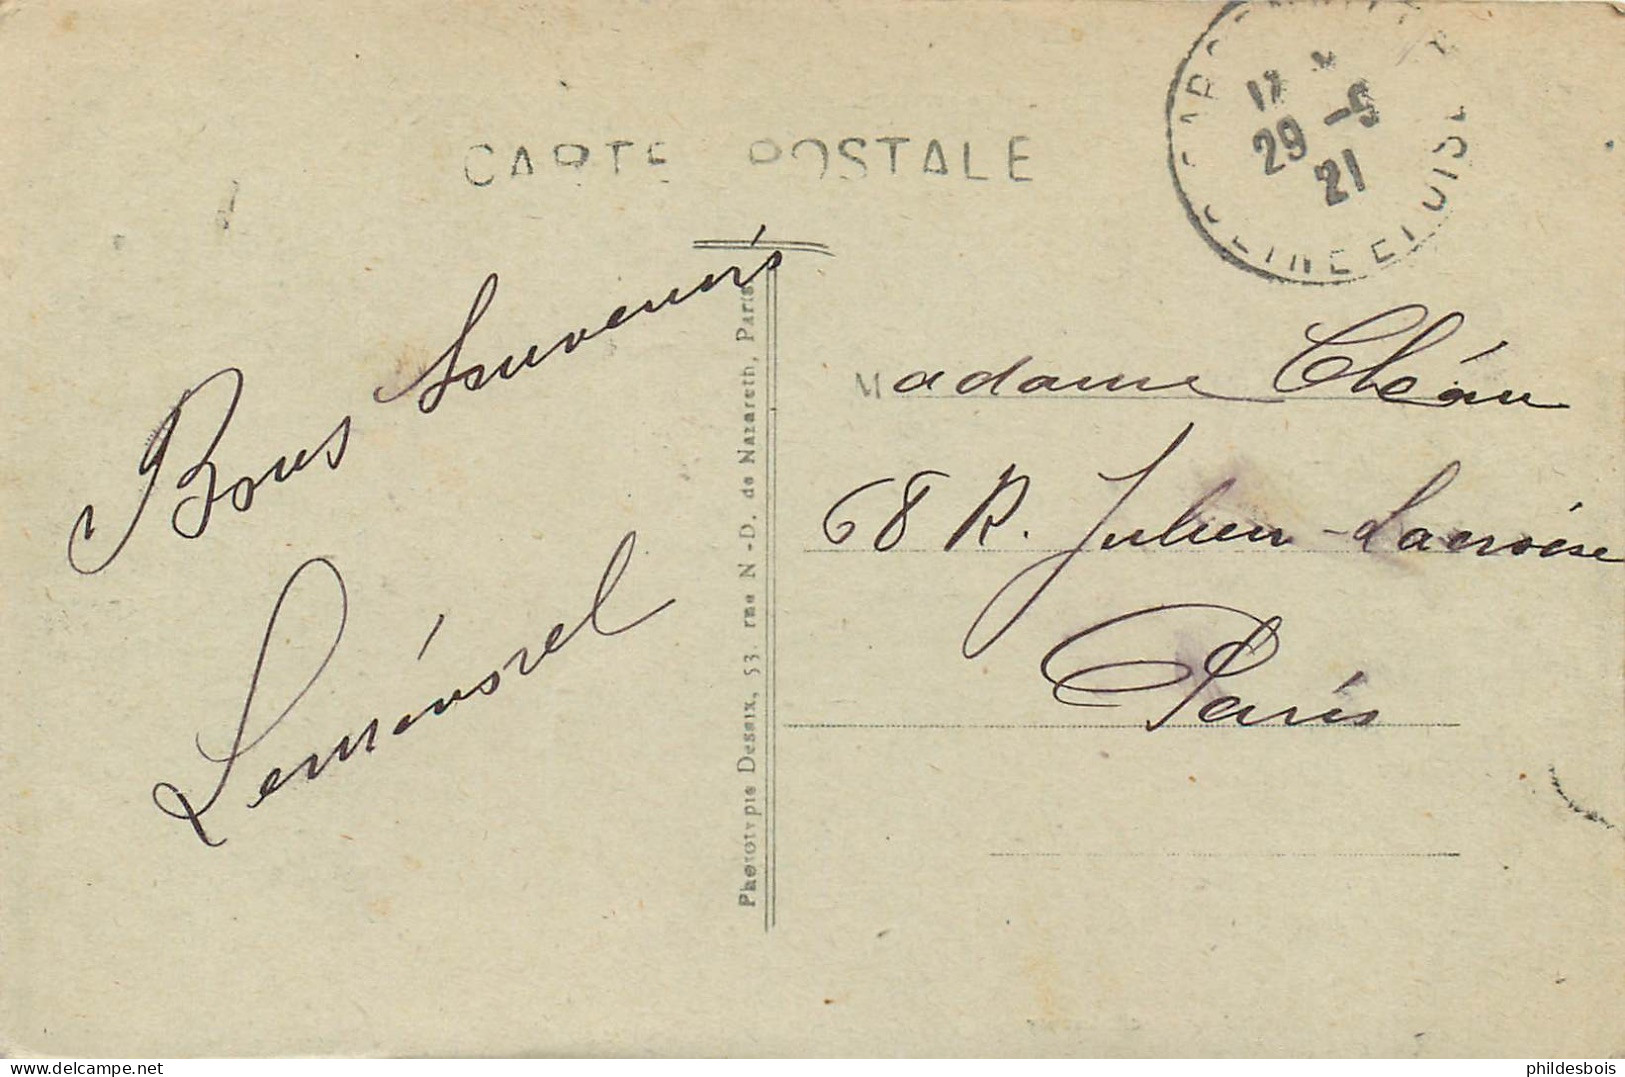 CARTE POSTALE
17
29 -5
21
SEINE ET OISE
Bons Souvenirs
Phototypie Desaix, 53, rue N.-D. de Nazareth, Paris
Madame
68 R. Julien-Lacroix
Paris
delcampe.net
phildesbois